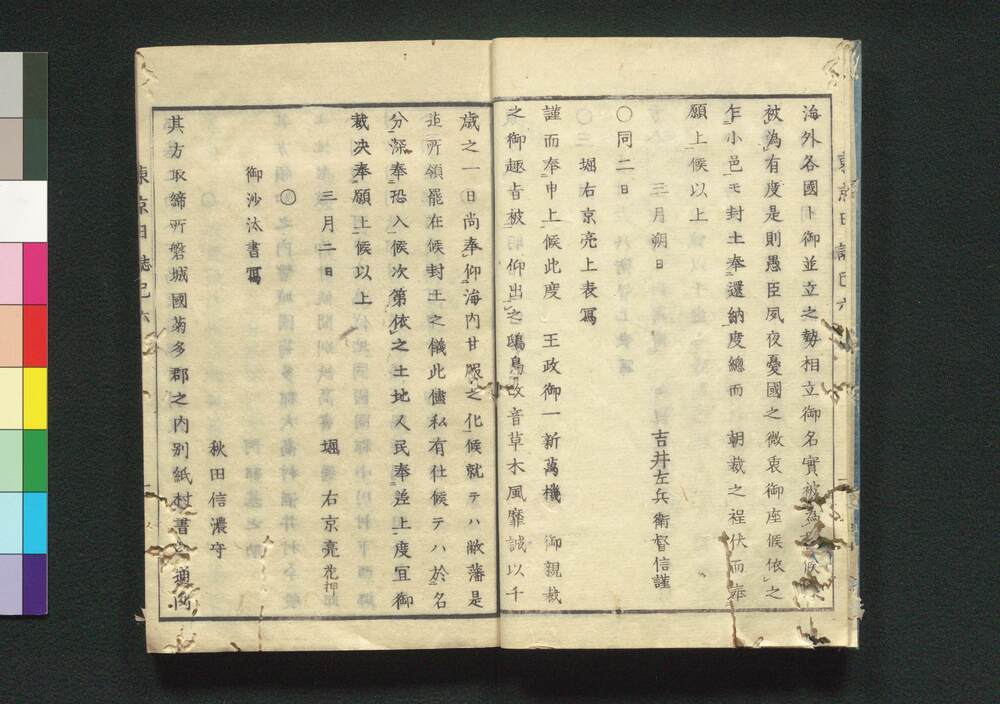 海外各國ト御並立之勢相立御名實被為
被為有度是則愚臣夙夜憂國之微衷御座候依之
乍小邑モ封土奉還納度總而　朝裁之程伏而奉
願上候以上
三月朔日　吉井左兵衛督信謹
〇同二日
堀右京亮上表寫
謹而奉申上候此度　王政御一新萬機　御親裁
之御趣旨被　仰出之鴟鳥改音草木風靡誠以千
歳之一日尚奉仰海内甘服之化候就テハ敝藩是
迄所領罷在候封土之儀此儘私有仕候テハ於名
分深奉恐入候次第依之土地人民奉差上度宜御
裁决奉願上候以上
三月二日　堀　右京亮花押
〇
御沙汰書寫
秋田信濃守
其方取締所磐城國菊多郡之内別紙村書之通
東京日誌巳六